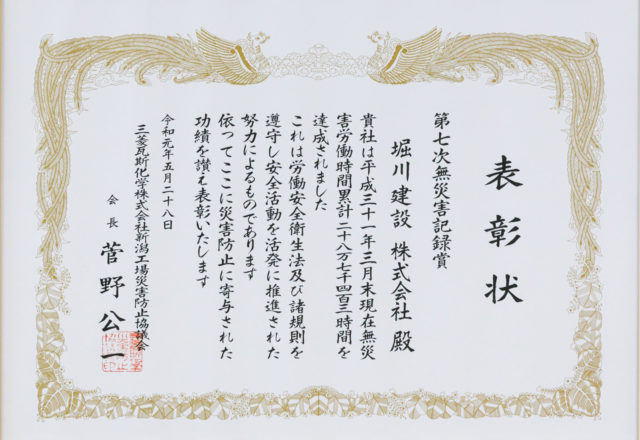 表彰状
第七次無災害記録賞
堀川建設 株式会社 殿
貴社は平成三十一年三月末現在無災
害労働時間累計二十八万七千四百三時間を
達成されました
これは労働安全衛生法及び諸規則を
遵守し安全活動を活発に推進された
努力によるものであります
依ってここに災害防止に寄与された
功績を讃え表彰いたします
令和元年五月二十八日
三菱瓦斯化学株式会社新潟工場災害防止協議会
会長 菅野公一